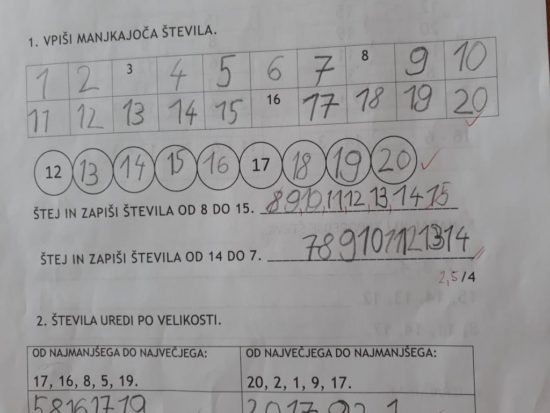 1. VPIŠI MANJKAJOČA ŠTEVILA.
1 2 3 4 5 6 7 8 9 10
11 12 13 14 15 16 17 18 19 20
12 13 14 15 16 17 18 19 20
ŠTEJ IN ZAPIŠI ŠTEVILA OD 8 DO 15. 8 9,10,11,12,13,14,15
ŠTEJ IN ZAPIŠI ŠTEVILA OD 14 DO 7. 7891011121314
2,5/4
2. ŠTEVILA UREDI PO VELIKOSTI.
OD NAJMANJŠEGA DO NAJVEČJEGA: OD NAJVEČJEGA DO NAJMANJŠEGA:
17, 16, 8, 5, 19. 20, 2, 1, 9, 17.
58161719 2017921